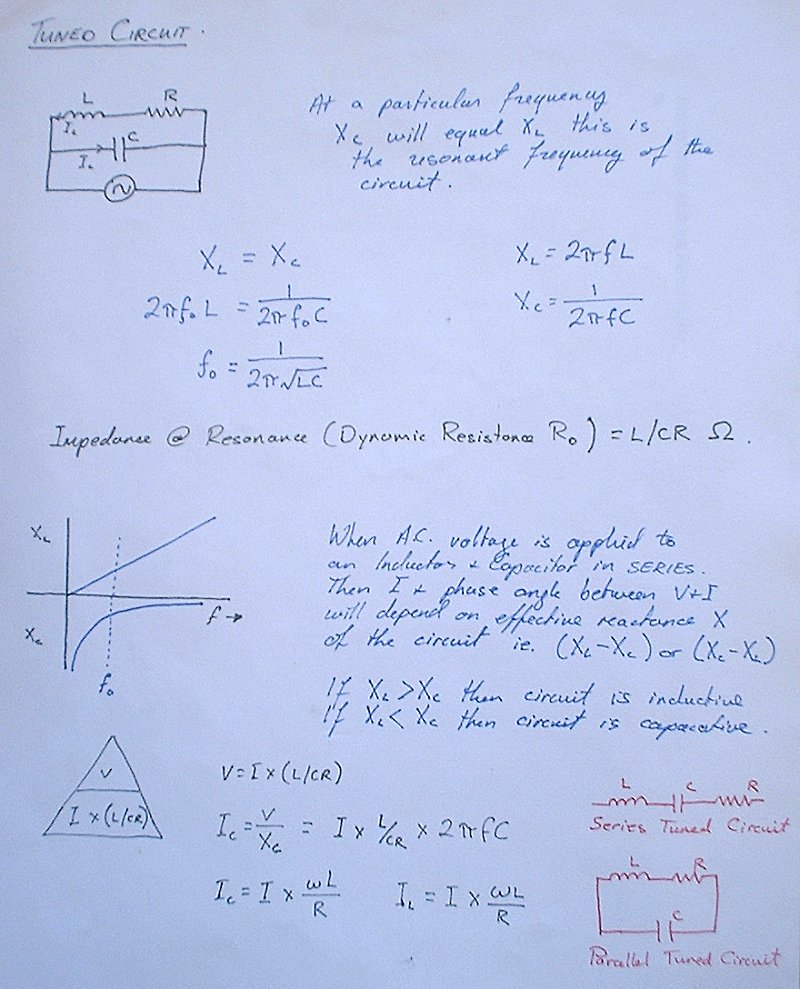 TUNED CIRCUIT.
L R
I_L
C
I_c
At a particular frequency
X_c will equal X_L this is
the resonant frequency of the
circuit.
X_L = X_c
2πf₀L = 1/(2πf₀C)
f₀ = 1/(2π√LC)
X_L = 2πfL
X_c = 1/(2πfC)
Impedance @ Resonance (Dynamic Resistance R₀) = L/CR Ω.
X_L
X_c
f →
f₀
When A.C. voltage is applied to
an Inductor + Capacitor in SERIES.
Then I + phase angle between V+I
will depend on effective reactance X
of the circuit ie. (X_L-X_c) or (X_c-X_L)
If X_L > X_c then circuit is inductive
If X_L < X_c then circuit is capacative.
V
I × (L/CR)
V = I × (L/CR)
I_c = V/X_c = I × L/CR × 2πfC
I_c = I × ωL/R I_L = I × ωL/R
L C R
Series Tuned Circuit
L R
C
Parallel Tuned Circuit